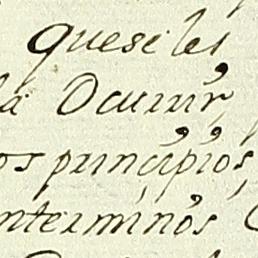 que se les
la Ocurrir
os principios
nterminos